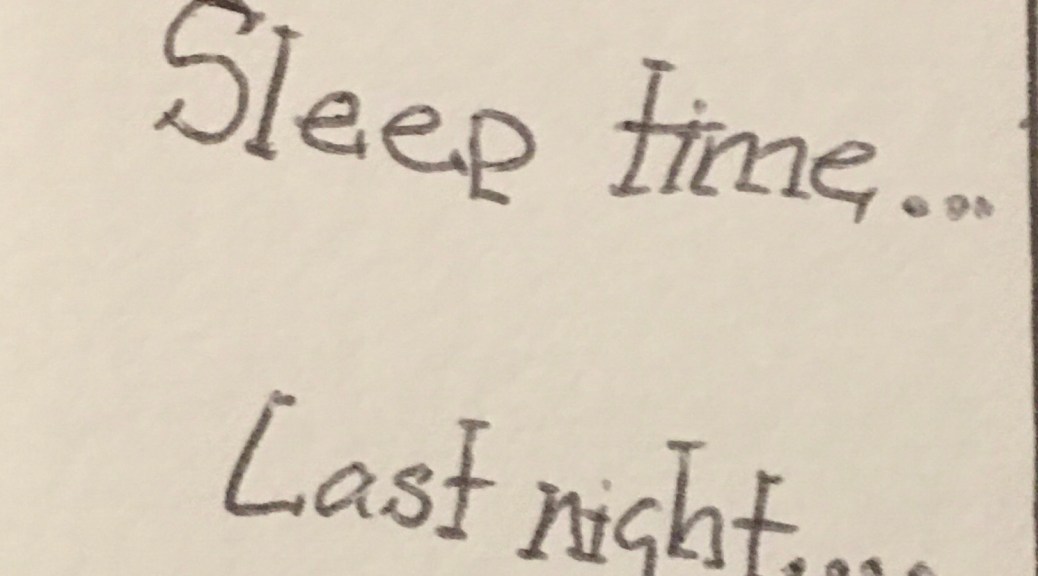 Sleep time...
Last night....